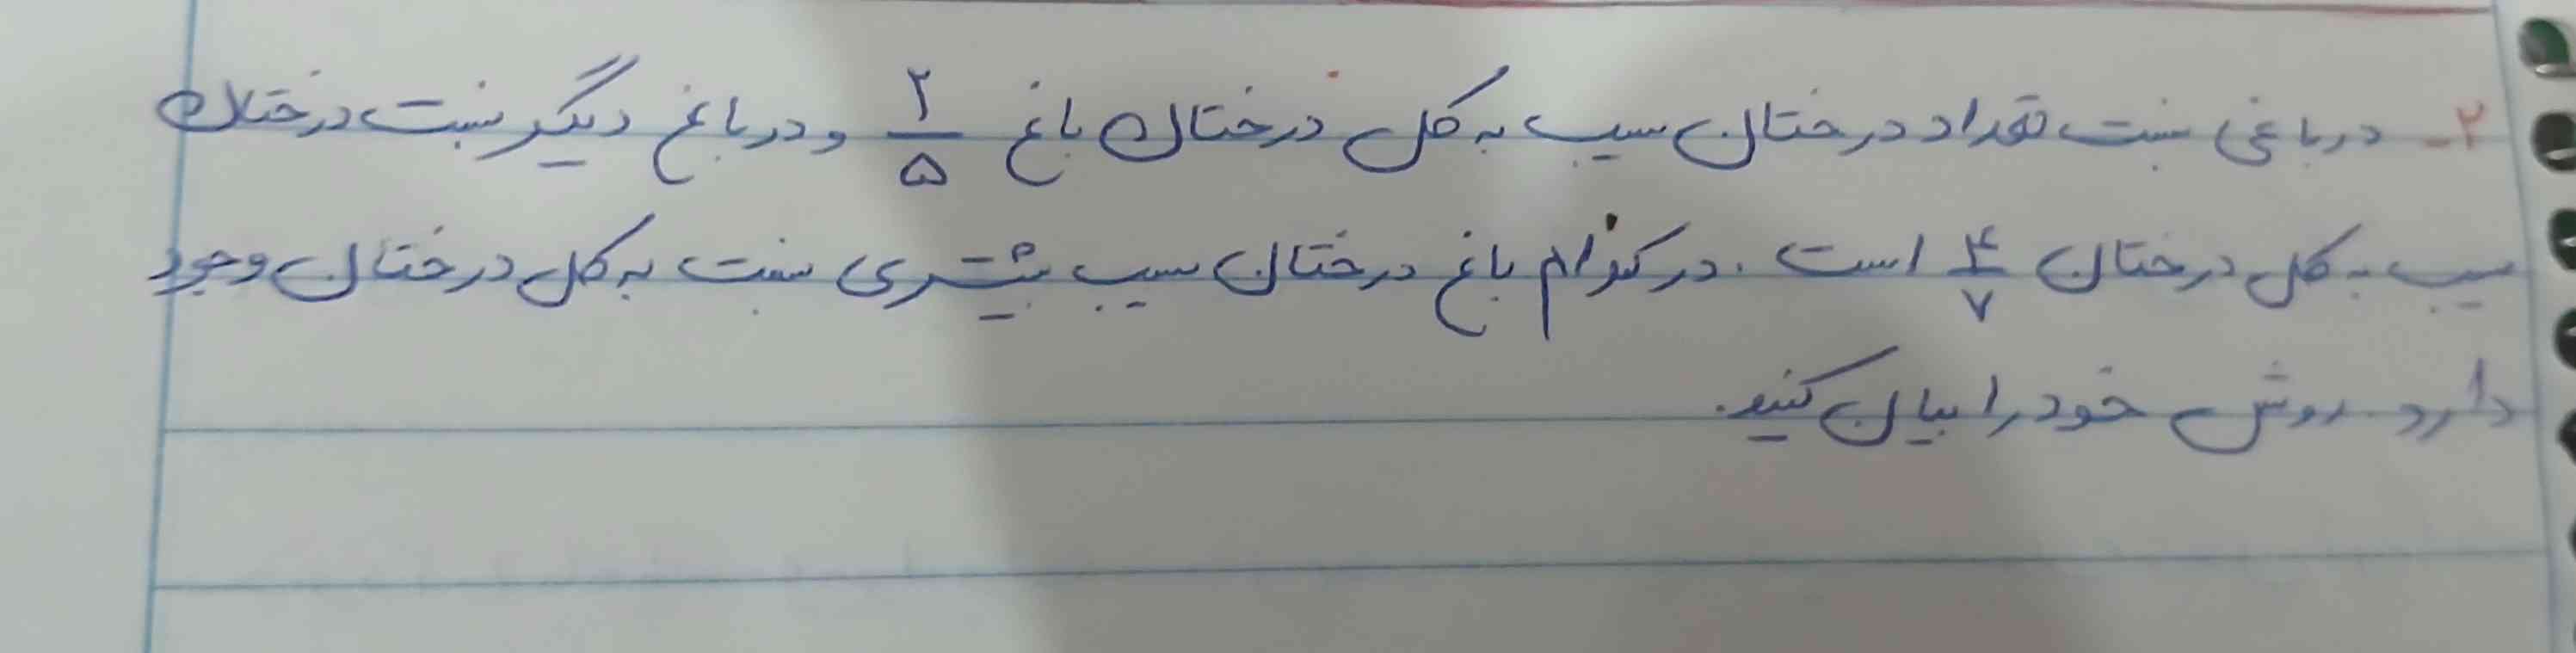 ۲- در باغی نسبت تعداد درختان سیب به کل درختان باغ ۲/۵ و در باغ دیگر نسبت درختان
سیب به کل درختان ۴/۷ است. در کدام باغ درختان سیب بیشتری نسبت به کل درختان وجود
دارد. روش خود را بیان کنید.